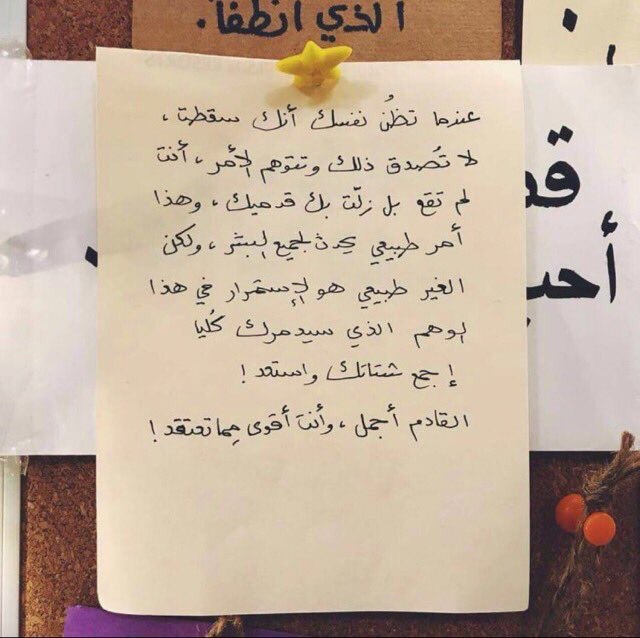 الذي انطفأ.
عندما تظُن نفسك أنك سقطت ،
لا تُصدق ذلك وتتوهم الأمر ، أنت
لم تقع بل زلّت بك قدميك ، وهذا
أمر طبيعي يحدث لجميع البشر ، ولكن
الغير طبيعي هو الإستمرار في هذا
الوهم الذي سيدمرك كُليا
إجمع شتاتك واستعد !
القادم أجمل ، وأنت أقوى مما تعتقد !